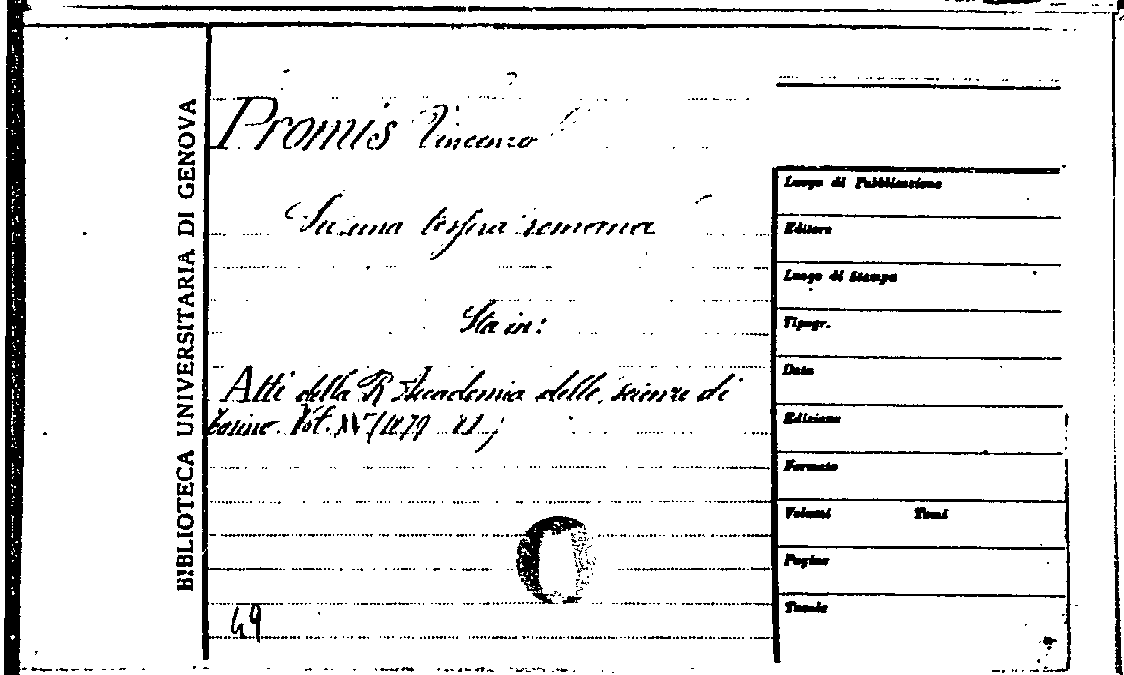 BIBLIOTECA UNIVERSITARIA DI GENOVA
Promis Vincenzo
Su una tessera romana
Sta in:
Atti della R Accademia delle scienze di
Torino. Vol. XV (1879
49
Luogo di Pubblicazione
Editore
Luogo di Stampa
Tipogr.
Data
Edizione
Formato
Volumi Tomi
Pagine
Tavole